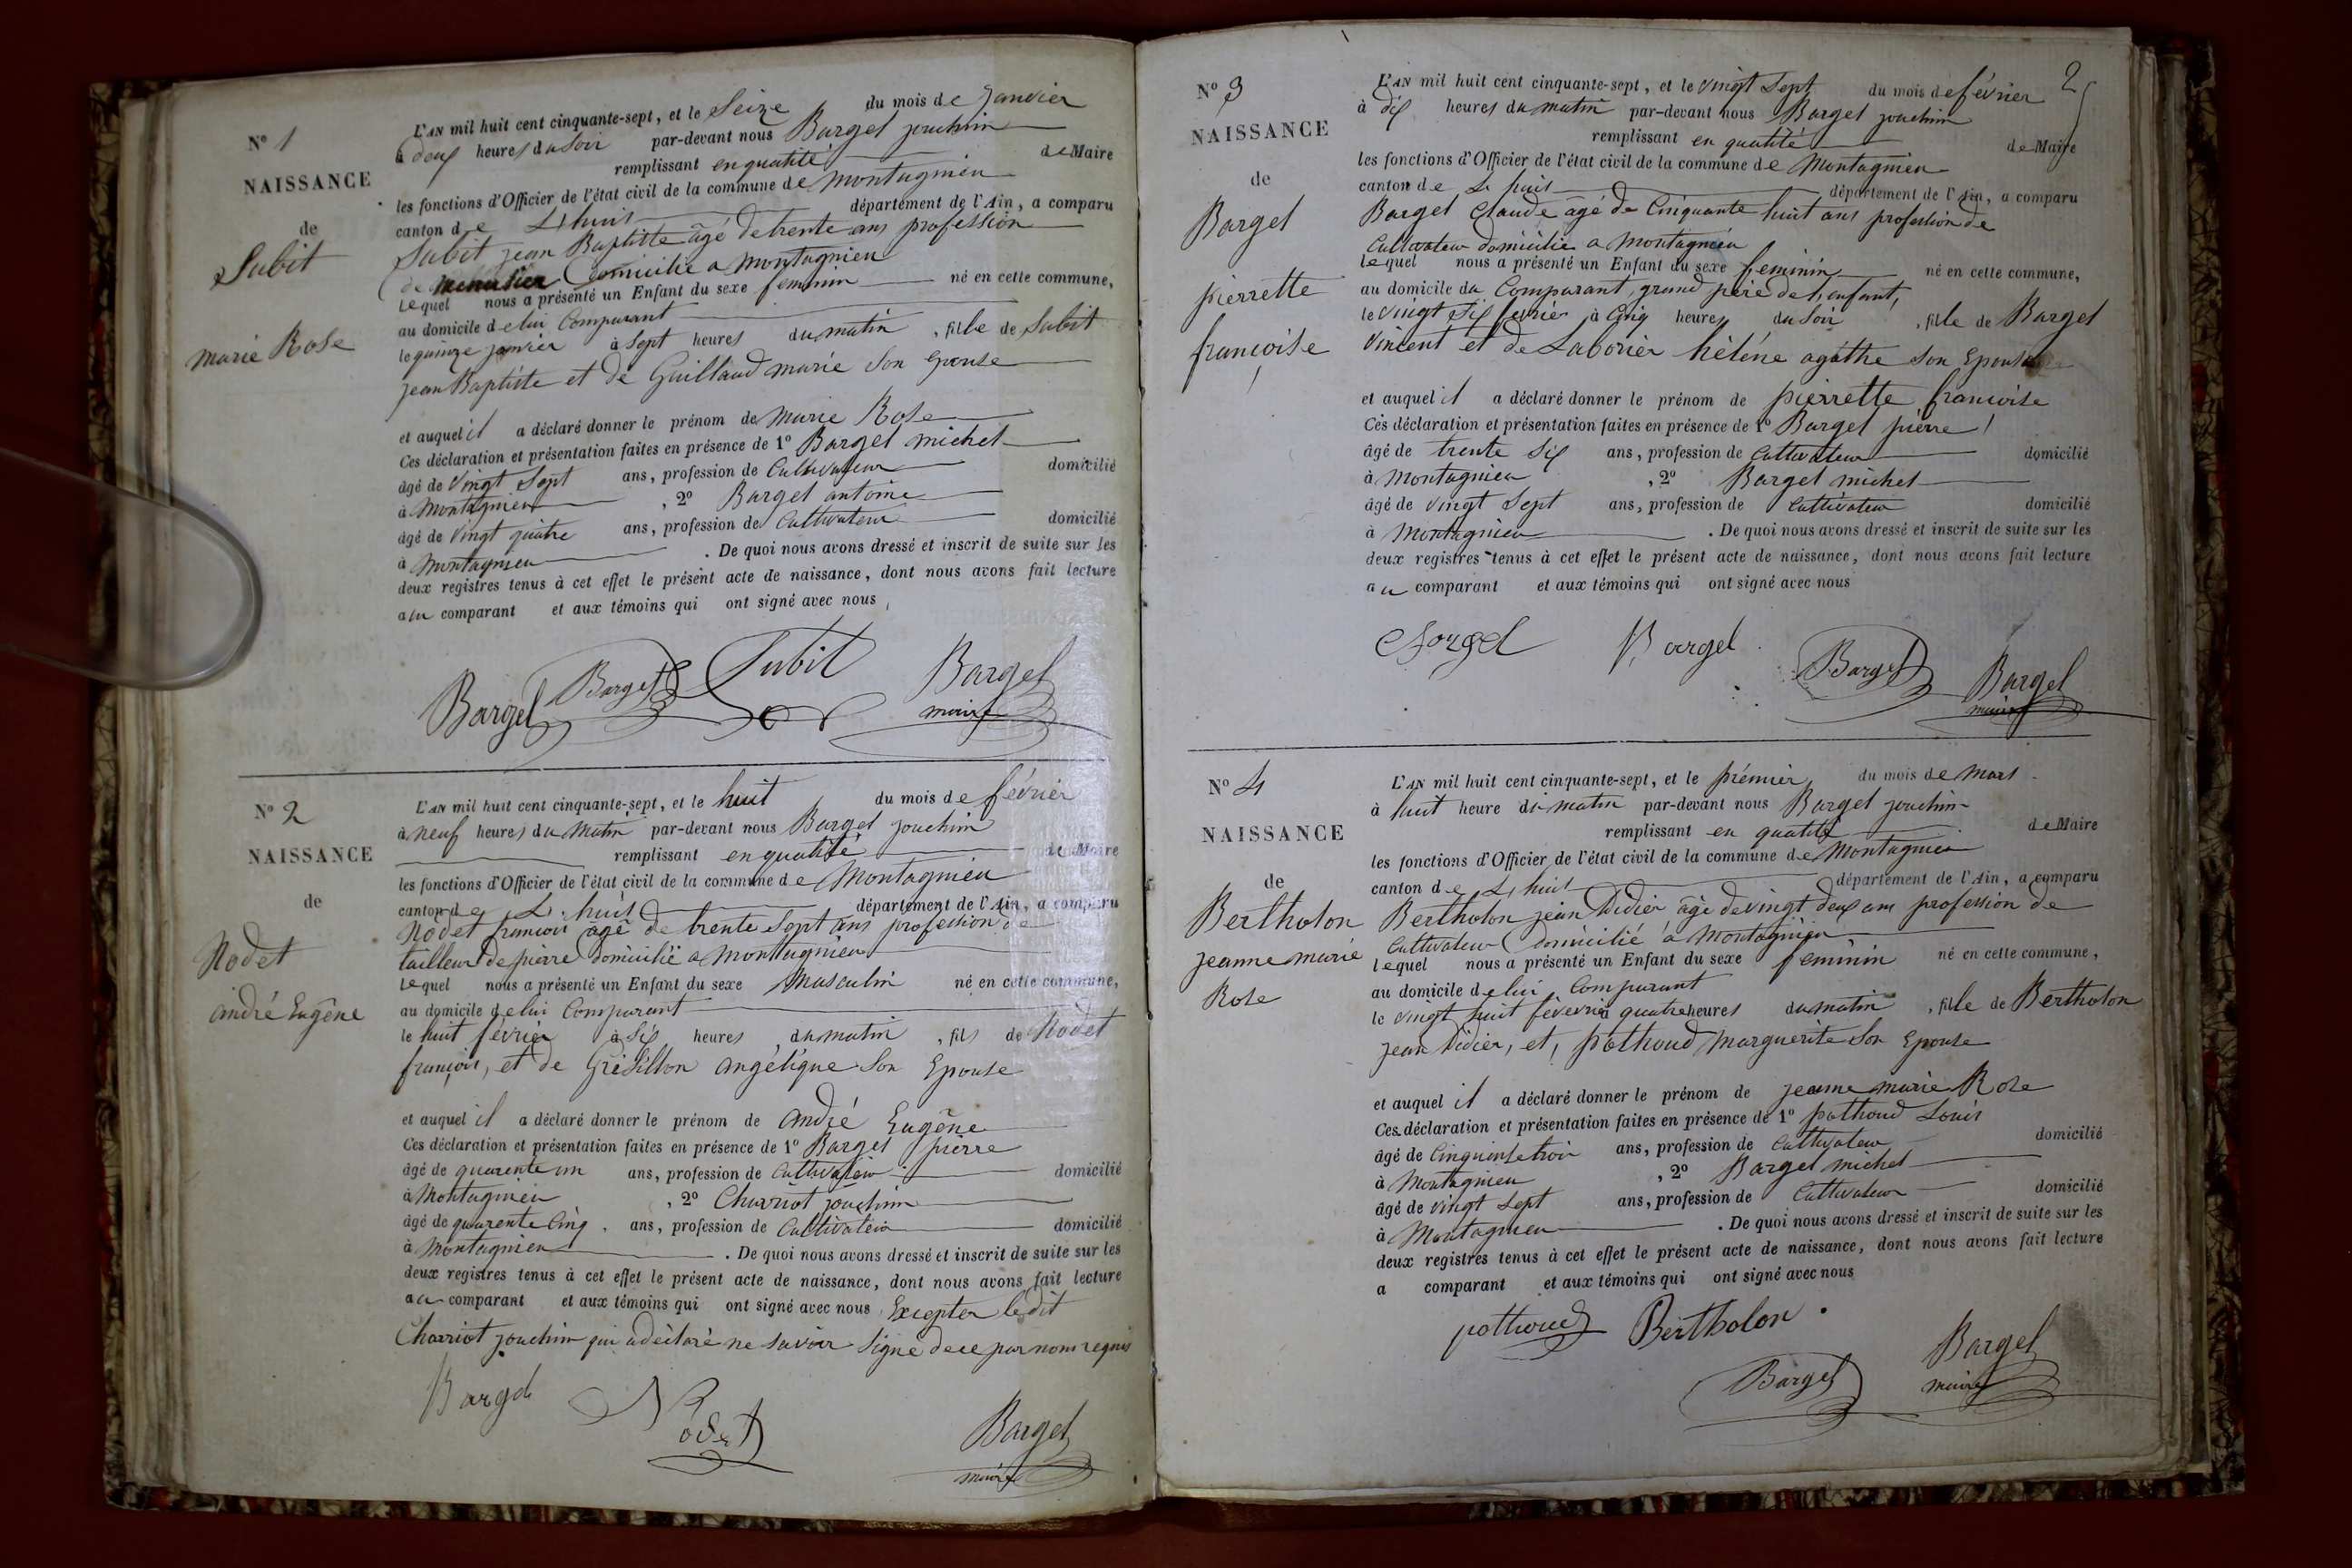 N° 1
NAISSANCE
de
Subit
marie Rose
L'AN mil huit cent cinquante-sept, et le Seize du mois de Janvier
à deux heures du Soir par-devant nous Barget joachim
remplissant en qualité de Maire
les fonctions d'Officier de l'état civil de la commune de Montagnieu
canton de Lhuis département de l'Ain, a comparu
Subit jean Baptiste âgé de trente ans profession
de menuisier Domicilié a Montagnieu
Lequel nous a présenté un Enfant du sexe feminin né en cette commune,
au domicile de lui Comparant
le quinze janvier à Sept heures du matin, fille de Subit
jean Baptiste et de Guilland marie Son Epouse
et auquel il a déclaré donner le prénom de Marie Rose
Ces déclaration et présentation faites en présence de 1° Barget michel
âgé de vingt Sept ans, profession de Cultivateur domicilié
à Montagnieu, 2° Barget antoine
âgé de vingt quatre ans, profession de Cultivateur domicilié
à Montagnieu. De quoi nous avons dressé et inscrit de suite sur les
deux registres tenus à cet effet le présent acte de naissance, dont nous avons fait lecture
au comparant et aux témoins qui ont signé avec nous,
Barget Barget Subit Barget
maire
N° 2
NAISSANCE
de
Nodet
andré Eugêne
L'AN mil huit cent cinquante-sept, et le huit du mois de février
à neuf heures du Matin par-devant nous Barget joachim
remplissant en qualité de Maire
les fonctions d'Officier de l'état civil de la commune de Montagnieu
canton de Lhuis département de l'Ain, a comparu
Nodet françois âgé de trente Sept ans profession de
tailleur de pierre domicilié a Montagnieu
Lequel nous a présenté un Enfant du sexe Masculin né en cette commune,
au domicile de lui Comparant
le huit février à Six heures du matin, fils de Nodet
françois, et de Grésillon angélique Son Epouse
et auquel il a déclaré donner le prénom de andré Eugêne
Ces déclaration et présentation faites en présence de 1° Barget pierre
âgé de quarente un ans, profession de Cultivateur domicilié
à Montagnieu, 2° Charriot joachim
âgé de quarente Cinq. ans, profession de Cultivateur domicilié
à Montagnieu. De quoi nous avons dressé et inscrit de suite sur les
deux registres tenus à cet effet le présent acte de naissance, dont nous avons fait lecture
au comparant et aux témoins qui ont signé avec nous Excepter le dit
Charriot joachim qui a déclaré ne savoir Signé de ce par nous requis
Barget Nodet Barget
maire
2
N° 3
NAISSANCE
de
Barget
pierrette
françoise
L'AN mil huit cent cinquante-sept, et le vingt Sept du mois de février
à dix heures du matin par-devant nous Barget joachim
remplissant en qualité de Maire
les fonctions d'Officier de l'état civil de la commune de Montagnieu
canton de Lhuis département de l'Ain, a comparu
Barget Claude âgé de Cinquante huit ans profession de
Cultivateur domicilié a Montagnieu
Lequel nous a présenté un Enfant du sexe feminin né en cette commune,
au domicile du Comparant grand père de l'enfant,
le vingt Six février à Cinq heures du Soir, fille de Barget
Vincent et de Laborier hélène agathe Son Epouse
et auquel il a déclaré donner le prénom de pierrette françoise
Ces déclaration et présentation faites en présence de 1° Barget pierre
âgé de trente Six ans, profession de Cultivateur domicilié
à Montagnieu, 2° Barget michel
âgé de vingt Sept ans, profession de Cultivateur domicilié
à Montagnieu. De quoi nous avons dressé et inscrit de suite sur les
deux registres tenus à cet effet le présent acte de naissance, dont nous avons fait lecture
au comparant et aux témoins qui ont signé avec nous
Barget Barget Barget Barget
maire
N° 4
NAISSANCE
de
Bertholon
jeanne marie
Rose
L'AN mil huit cent cinquante-sept, et le prémier du mois de Mars
à huit heure du matin par-devant nous Barget joachim
remplissant en qualité de Maire
les fonctions d'Officier de l'état civil de la commune de Montagnieu
canton de Lhuis département de l'Ain, a comparu
Bertholon jean Didier âgé de vingt deux ans profession de
Cultivateur Domicilié a Montagnieu
Lequel nous a présenté un Enfant du sexe feminin né en cette commune,
au domicile de lui Comparant
le vingt huit féverié à quatre heures du matin, fille de Bertholon
jean Didier, et, pothoud Marguerite Son Epouse
et auquel il a déclaré donner le prénom de jeanne marie Rose
Ces déclaration et présentation faites en présence de 1° pothoud Louis
âgé de Cinquinte trois ans, profession de Cultivateur domicilié
à Montagnieu, 2° Barget michel
âgé de vingt Sept ans, profession de Cultivateur domicilié
à Montagnieu. De quoi nous avons dressé et inscrit de suite sur les
deux registres tenus à cet effet le présent acte de naissance, dont nous avons fait lecture
a comparant et aux témoins qui ont signé avec nous
pothoud Bertholon Barget Barget
maire